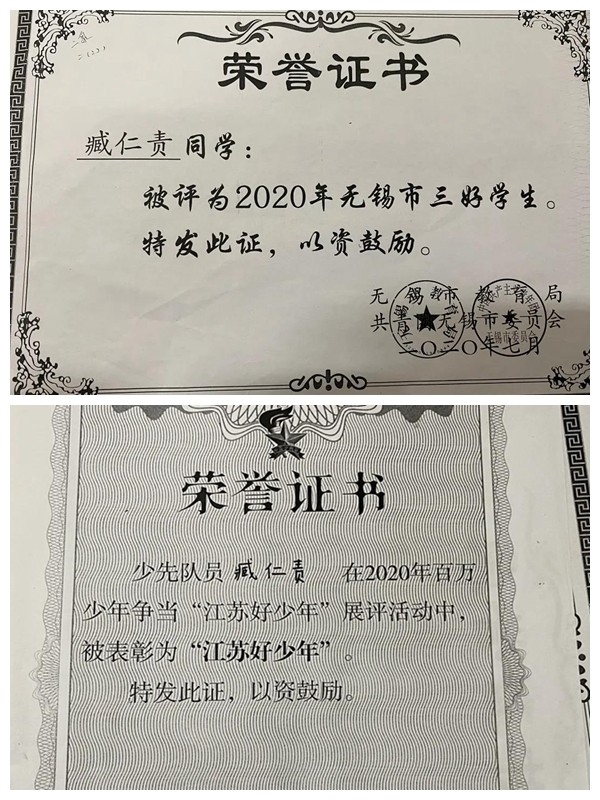 荣誉证书
臧仁责同学：
被评为2020年无锡市三好学生。
特发此证，以资鼓励。
无锡市教育局
共青团无锡市委员会
二〇二〇年七月
荣誉证书
少先队员 臧仁责 在2020年百万
少年争当“江苏好少年”展评活动中，
被表彰为“江苏好少年”。
特发此证，以资鼓励。